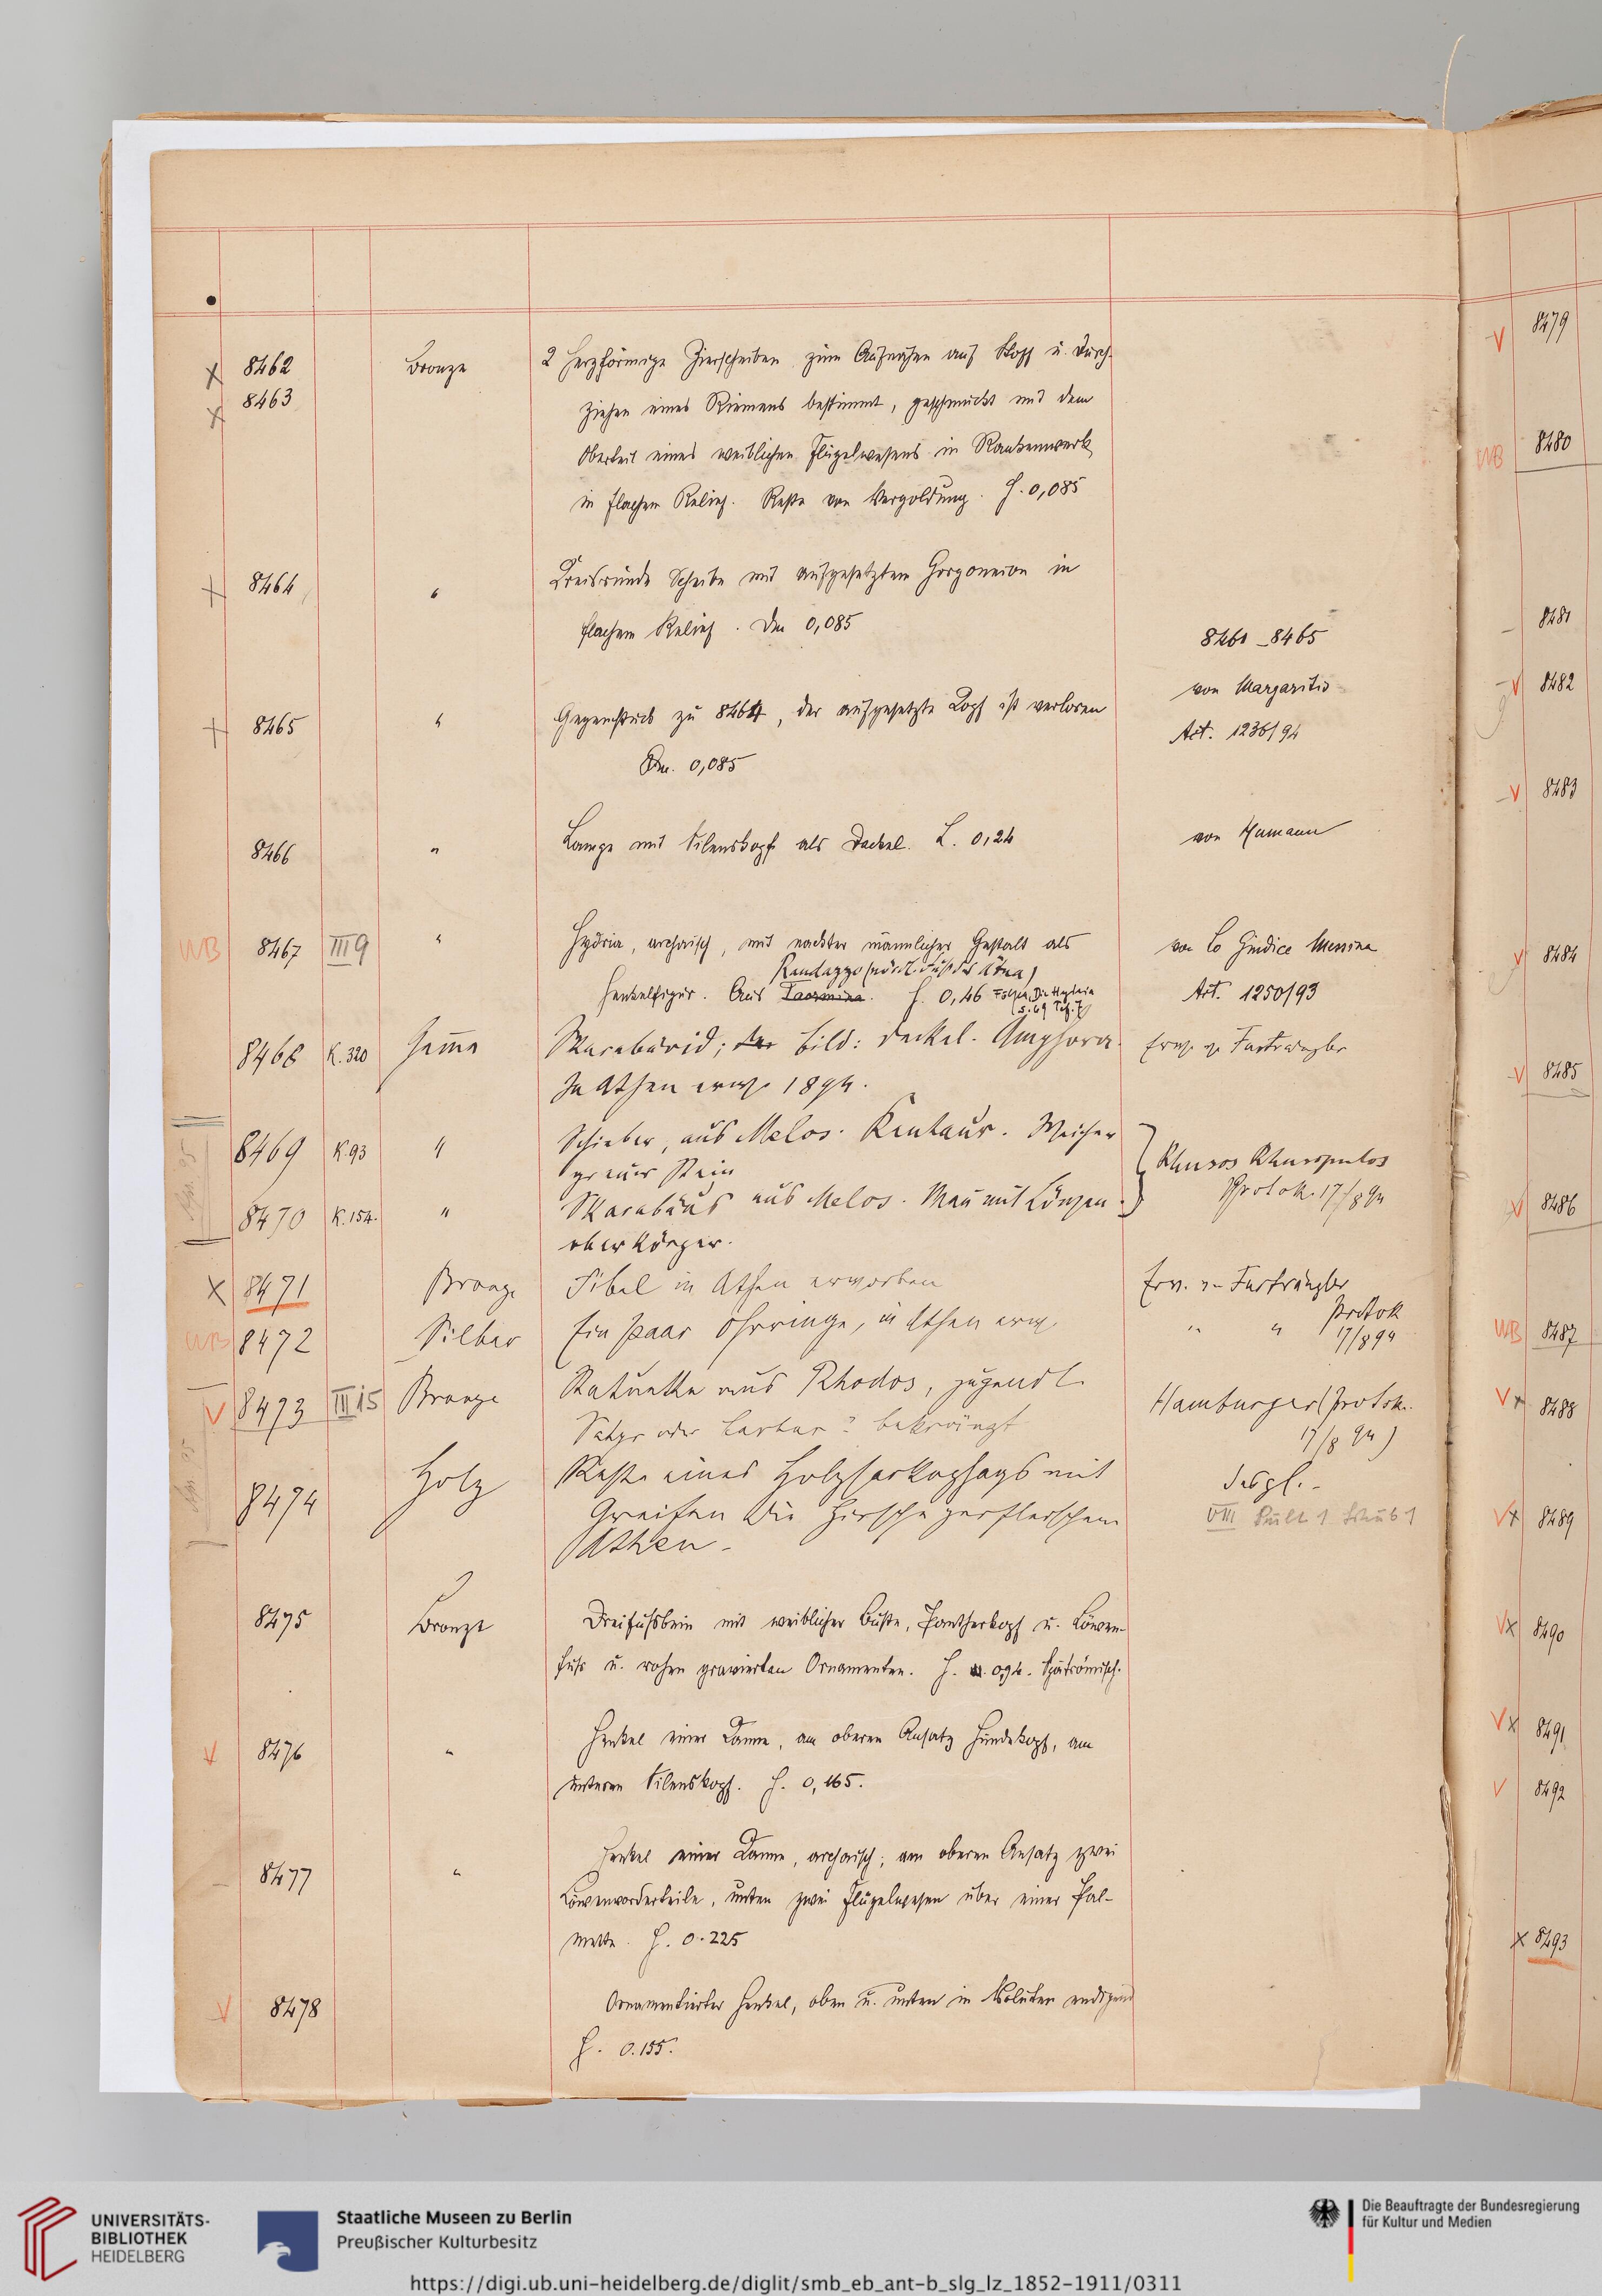 8462 Bronze 2 herzförmige Zierscheiben zum Aufnähen auf Stoff u. Durch-
8463 ziehen eines Riemens bestimmt, geschmückt mit dem
Oberteil eines weiblichen Flügelwesens in Rankenwerk
in flachem Relief. Reste von Vergoldung. H. 0,085
8464 " Kreisrunde Scheibe mit aufgesetztem Gorgoneion in
flachem Relief. Dm 0,085
8461–8465
von Margaritis
8465 " Gegenstück zu 8464, der aufgesetzte Kopf ist verloren
Act. 1236/94
Dm. 0,085
8466 " Lampe mit Silenskopf als Deckel. L. 0,24 von Humann
WB 8467 III 9 " Hydria, archaisch, mit nackter männlicher Gestalt als von Lo Giudice Messina
Randazzo (nördl. Fuß des Ätna)
Henkelfigur. Aus Taormina. H. 0,46 Act. 1250/93
S. 69 Tf. 7
8468 K. 320 Gemme Skarabäoid; der Bild: Deckel. Amphora. Erw. v. Furtwängler
In Athen erw. 1894.
8469 K. 93 " Schieber, aus Melos. Kentaur. Weicher
grauer Stein
Rhusos Rhusopulos
Protok. 17/8 94
8470 K. 154. " Skarabäus aus Melos. Mann mit Lönzen
oberkörper.
X 8471 Bronze Fibel in Athen erworben Erw. v. Furtwängler
WB 8472 Silber Ein Paar Ohrringe, in Athen erw. " " Protok
17/8 94
V 8473 III 15 Bronze Statuette aus Rhodos, jugendl.
Satyr oder Barbar? bekränzt
Hamburger (Protok.
17/8 94)
8474 Holz Reste eines Holzsarkophags mit desgl.
Greifen die Hirsche zerfleischen VIII Pult 1 Schub 1
Athen.
8475 Bronze Dreifußbein mit weiblicher Büste, Pantherkopf u. Löwen-
fuß u. rohen gravierten Ornamenten. H. 0,94. Spätrömisch.
V 8476 " Henkel einer Kanne, am oberen Ansatz Hundekopf, am
unteren Silenskopf. H. 0,165.
8477 " Henkel einer Kanne, archaisch; am oberen Ansatz zwei
Löwenvorderteile, unten zwei Flügelwesen über einer Pal-
mette. H. 0.225
V 8478 Ornamentierter Henkel, oben u. unten in Voluten endigend
H. 0.155.
V 8479
WB 8480
8481
V 8482
V 8483
V 8484
V 8485
V 8486
WB 8487
V x 8488
V x 8489
V x 8490
V x 8491
V 8492
X 8493
UNIVERSITÄTS-
BIBLIOTHEK
HEIDELBERG
Staatliche Museen zu Berlin
Preußischer Kulturbesitz
Die Beauftragte der Bundesregierung
für Kultur und Medien
https://digi.ub.uni-heidelberg.de/diglit/smb_eb_ant-b_slg_lz_1852-1911/0311